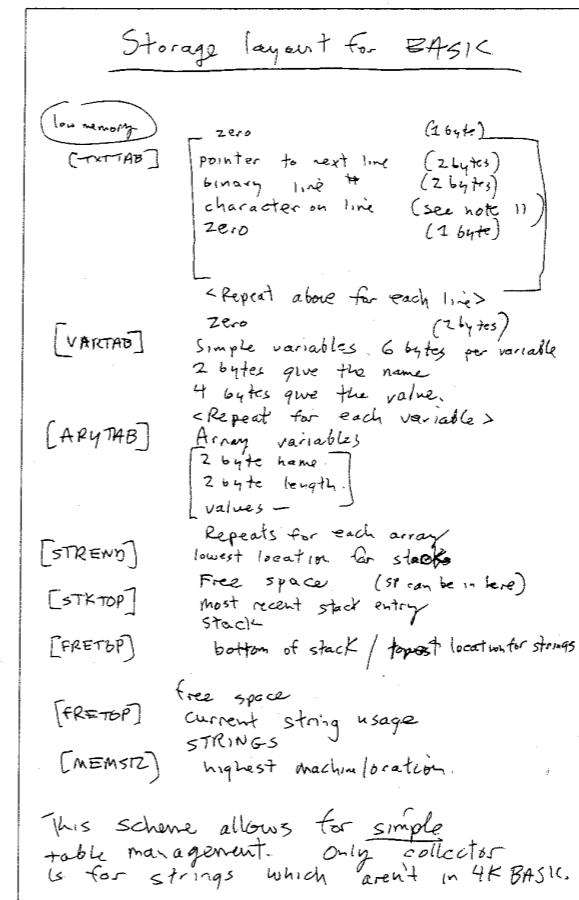 Storage layout for BASIC
low memory
zero (1 byte)
[TXTTAB] pointer to next line (2 bytes)
binary line # (2 bytes)
character on line (see note 11)
zero (1 byte)
<Repeat above for each line>
zero (2 bytes)
[VARTAB] Simple variables. 6 bytes per variable
2 bytes give the name
4 bytes give the value.
<Repeat for each variable>
[ARYTAB] Array variables
2 byte name.
2 byte length.
values —
Repeats for each array
[STREND] lowest location for stack
Free space (SP can be in here)
[STKTOP] most recent stack entry
stack
[FRETOP] bottom of stack / location for strings
free space
[FRETOP] current string usage
STRINGS
[MEMSIZ) highest machine location.
This scheme allows for simple
table management. Only collector
is for strings which aren't in 4K BASIC.